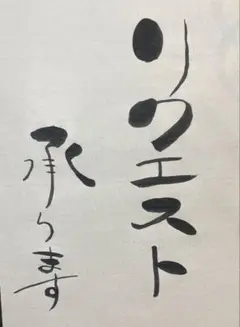 リクエスト
承ります